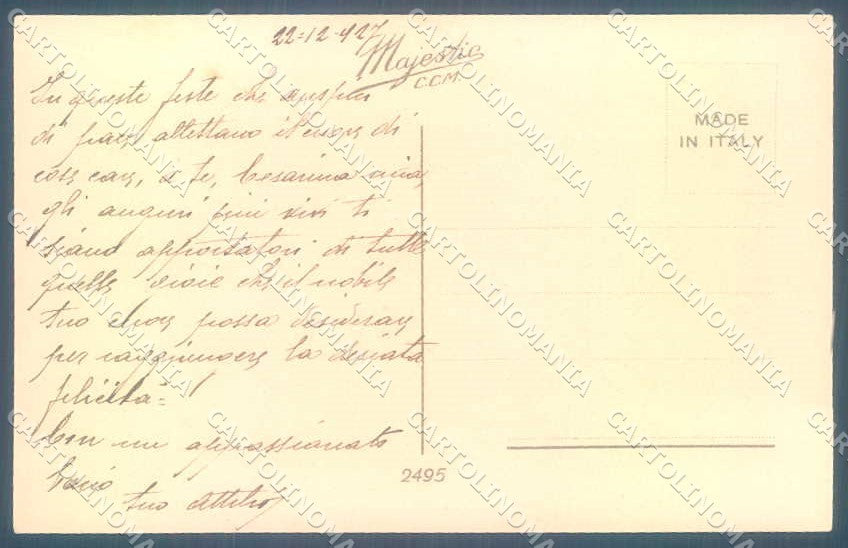 22-12-427
Majestic
C.C.M.
In queste feste che auspici
di pace allettano il cuore di
cose care, a te, Cesarina mia,
gli auguri più vivi ti
siano apportatori di tutte
quelle gioie che il nobile
tuo cuore possa desiderare
per raggiungere la desiata
felicità=
Con un appassionato
bacio
tuo Attilio
MADE
IN ITALY
2495
CARTOLINOMANIA